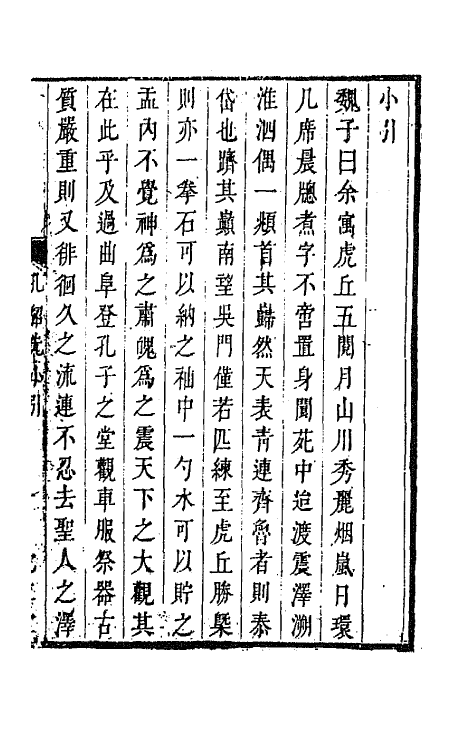 小引
魏子曰余寓虎丘五閱月山川秀麗烟嵐日環
几席晨牕煮字不啻置身閬苑中迨渡震澤溯
淮泗偶一頫首其巋然天表青連齊魯者則泰
岱也躋其巔南望吳門僅若匹練至虎丘勝槩
則亦一拳石可以納之袖中一勺水可以貯之
盂內不覺神為之肅魄為之震天下之大觀其
在此乎及過曲阜登孔子之堂觀車服祭器古
質嚴重則又徘徊久之流連不忍去聖人之澤
小引